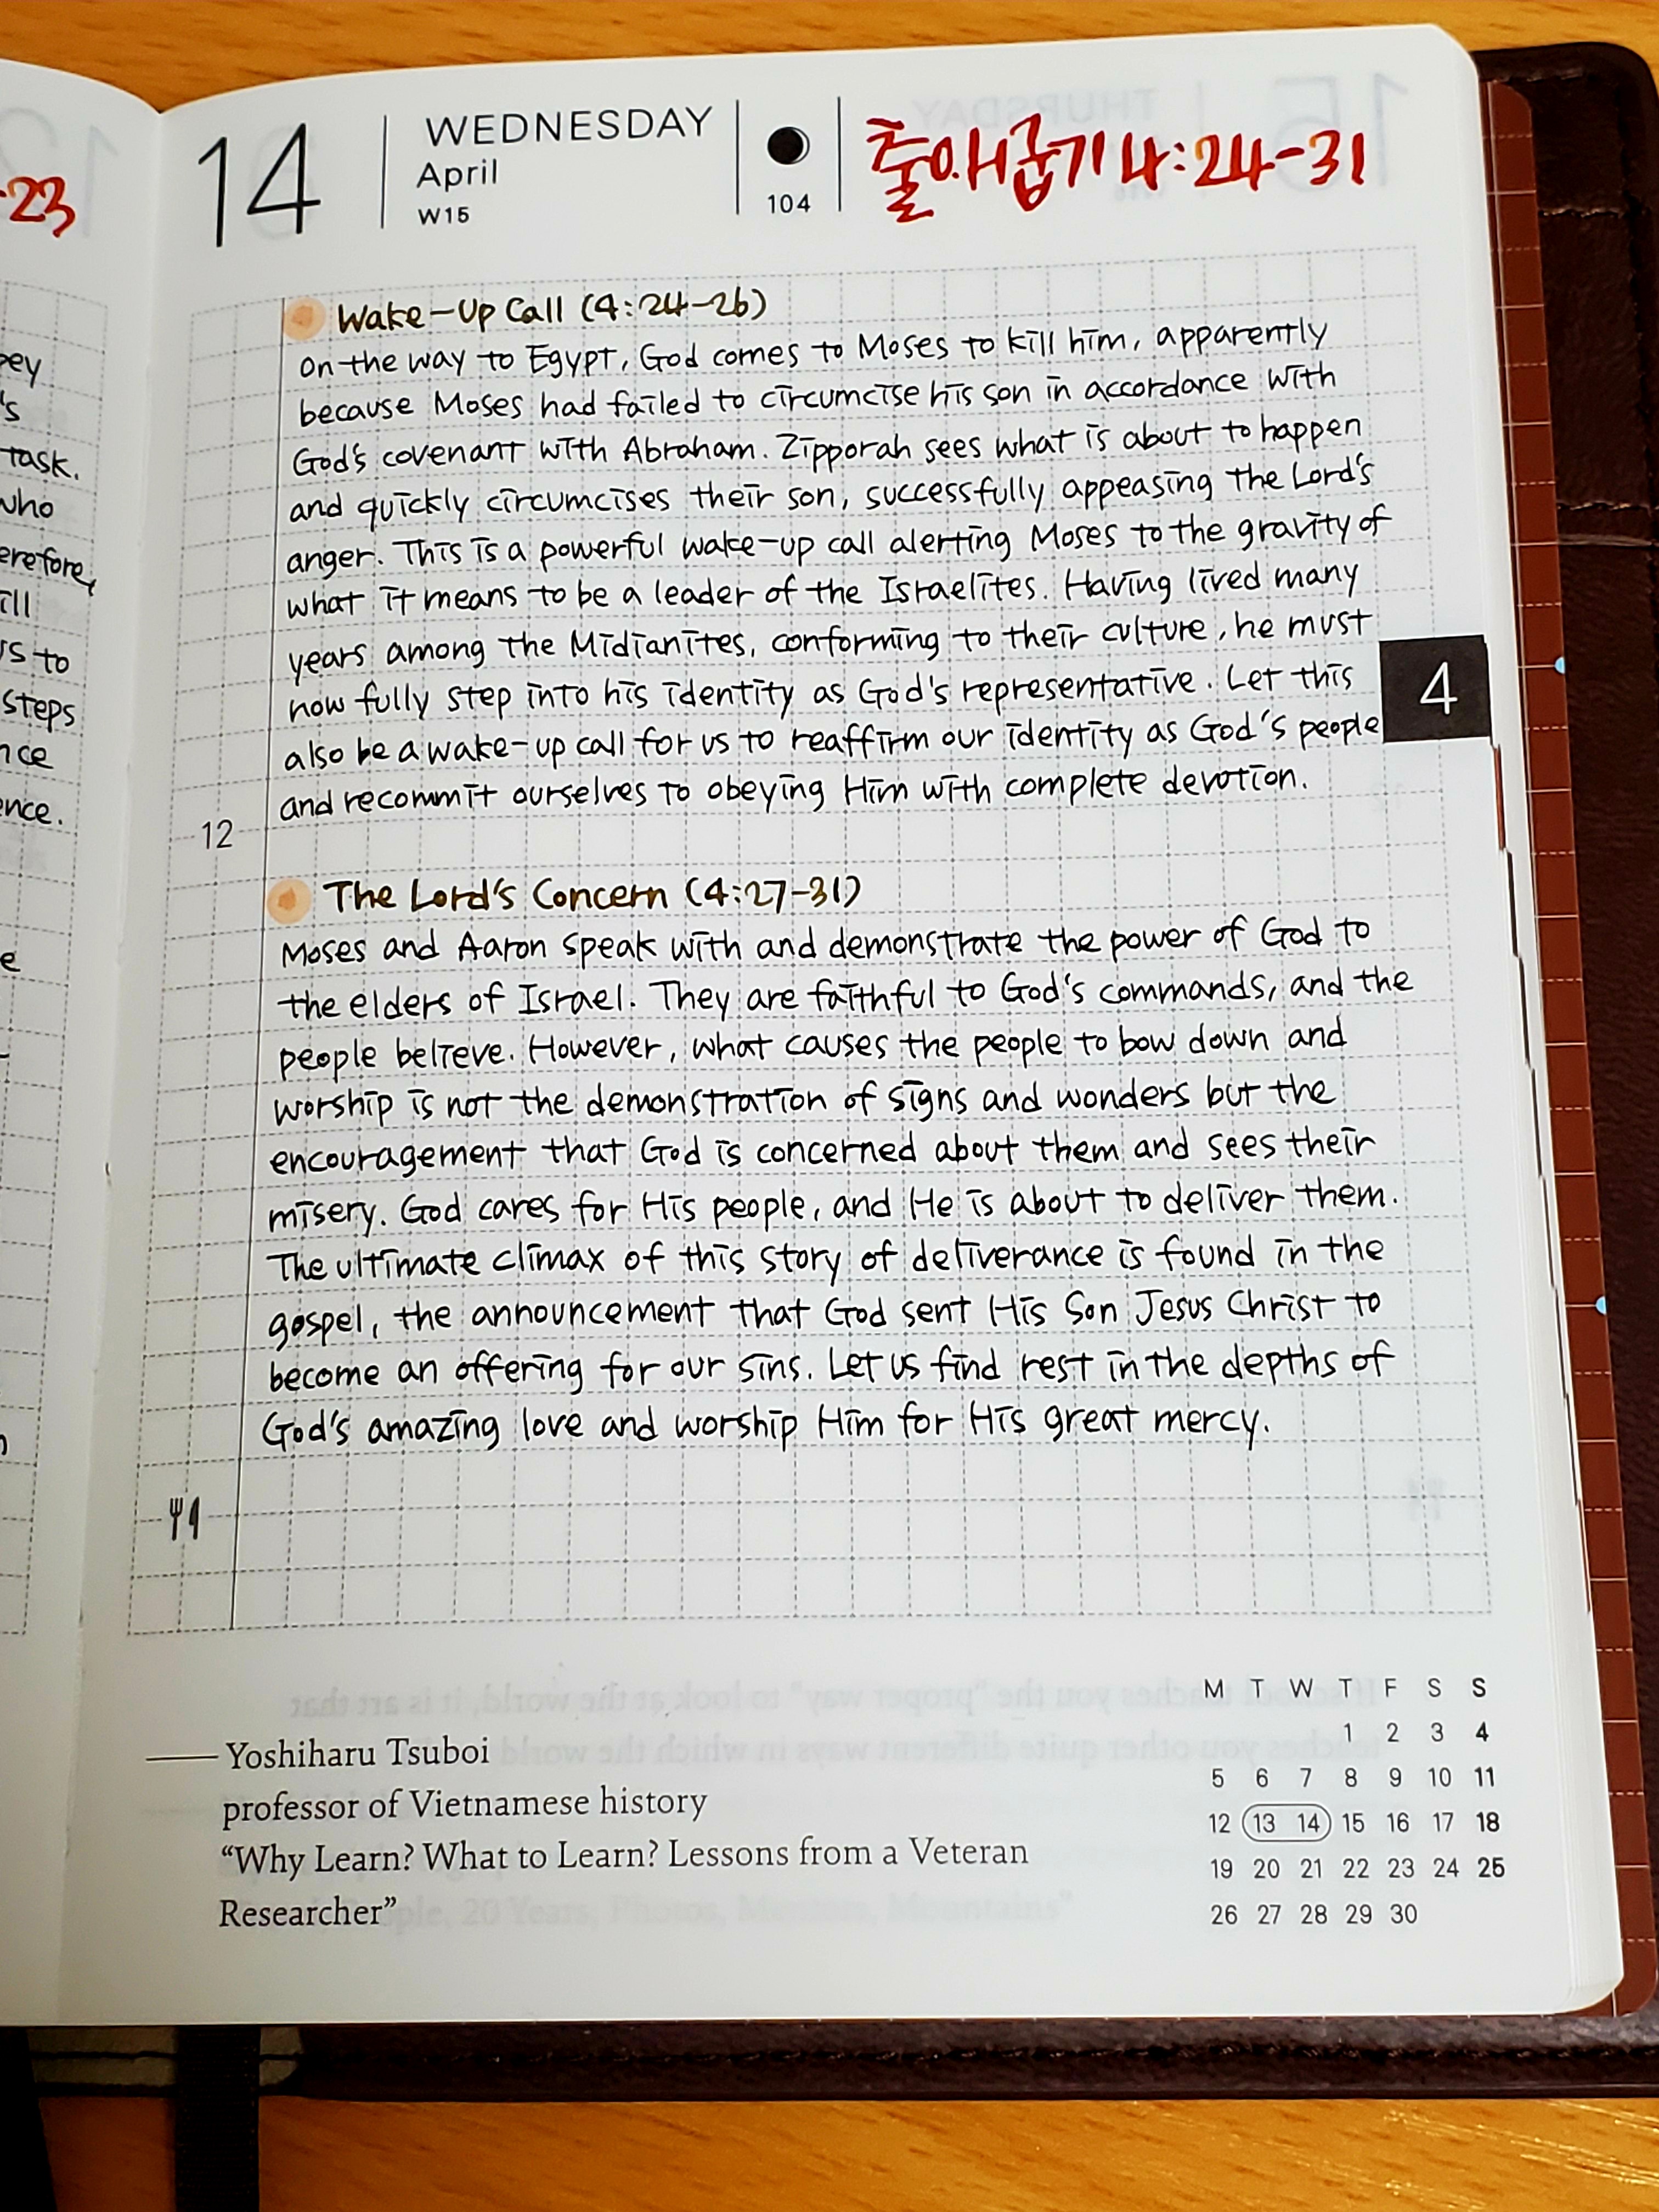 -23
14
WEDNESDAY
April
W15
104
출애굽기 4:24-31
Wake-Up Call (4:24-26)
On the way to Egypt, God comes to Moses to kill him, apparently
because Moses had failed to circumcise his son in accordance with
God's covenant with Abraham. Zipporah sees what is about to happen
and quickly circumcises their son, successfully appeasing the Lord's
anger. This is a powerful wake-up call alerting Moses to the gravity of
what it means to be a leader of the Israelites. Having lived many
years among the Midianites, conforming to their culture, he must
now fully step into his identity as God's representative. Let this
also be a wake-up call for us to reaffirm our identity as God's people
and recommit ourselves to obeying Him with complete devotion.
4
12
The Lord's Concern (4:27-31)
Moses and Aaron speak with and demonstrate the power of God to
the elders of Israel. They are faithful to God's commands, and the
people believe. However, what causes the people to bow down and
worship is not the demonstration of signs and wonders but the
encouragement that God is concerned about them and sees their
misery. God cares for His people, and He is about to deliver them.
The ultimate climax of this story of deliverance is found in the
gospel, the announcement that God sent His Son Jesus Christ to
become an offering for our sins. Let us find rest in the depths of
God's amazing love and worship Him for His great mercy.
—— Yoshiharu Tsuboi
professor of Vietnamese history
“Why Learn? What to Learn? Lessons from a Veteran
Researcher”
M T W T F S S
1 2 3 4
5 6 7 8 9 10 11
12 13 14 15 16 17 18
19 20 21 22 23 24 25
26 27 28 29 30
task.
who
erefore,
s to
steps